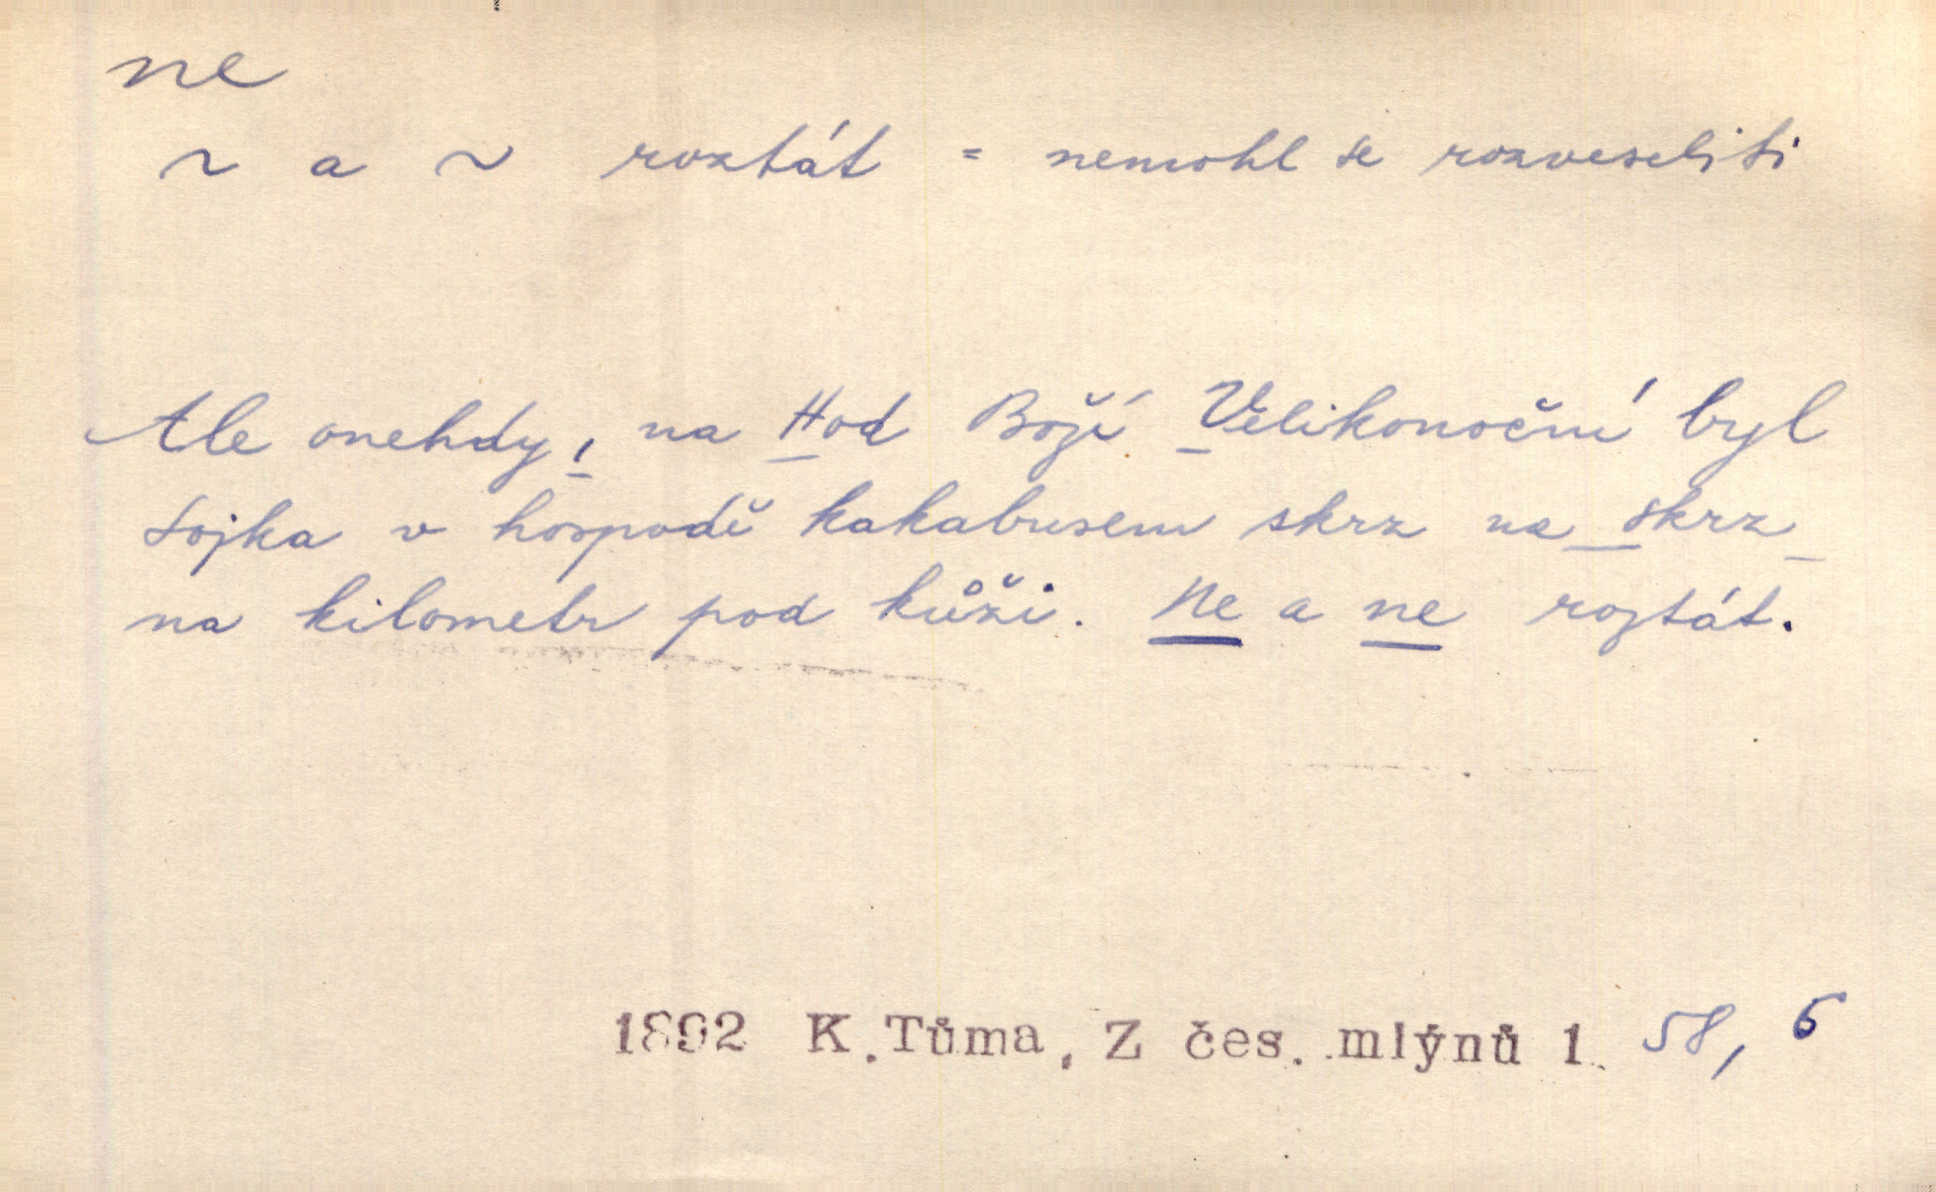 ne
~ a ~ roztát = nemohl se rozveseliti
Ale onehdy, na Hod Boží Velikonoční byl
Sojka v hospodě kakabusem skrz na skrz
na kilometr pod kůži. Ne a ne roztát.
1892 K.Tůma, Z čes. mlýnů 1. 58, 6